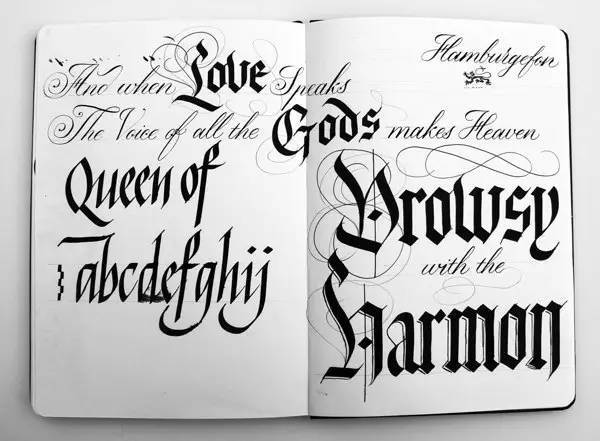 Hamburgefon
And when Love Speaks
The Voice of all the Gods makes Heaven
Drowsy
with the
Harmon
Queen of
abcdefghij